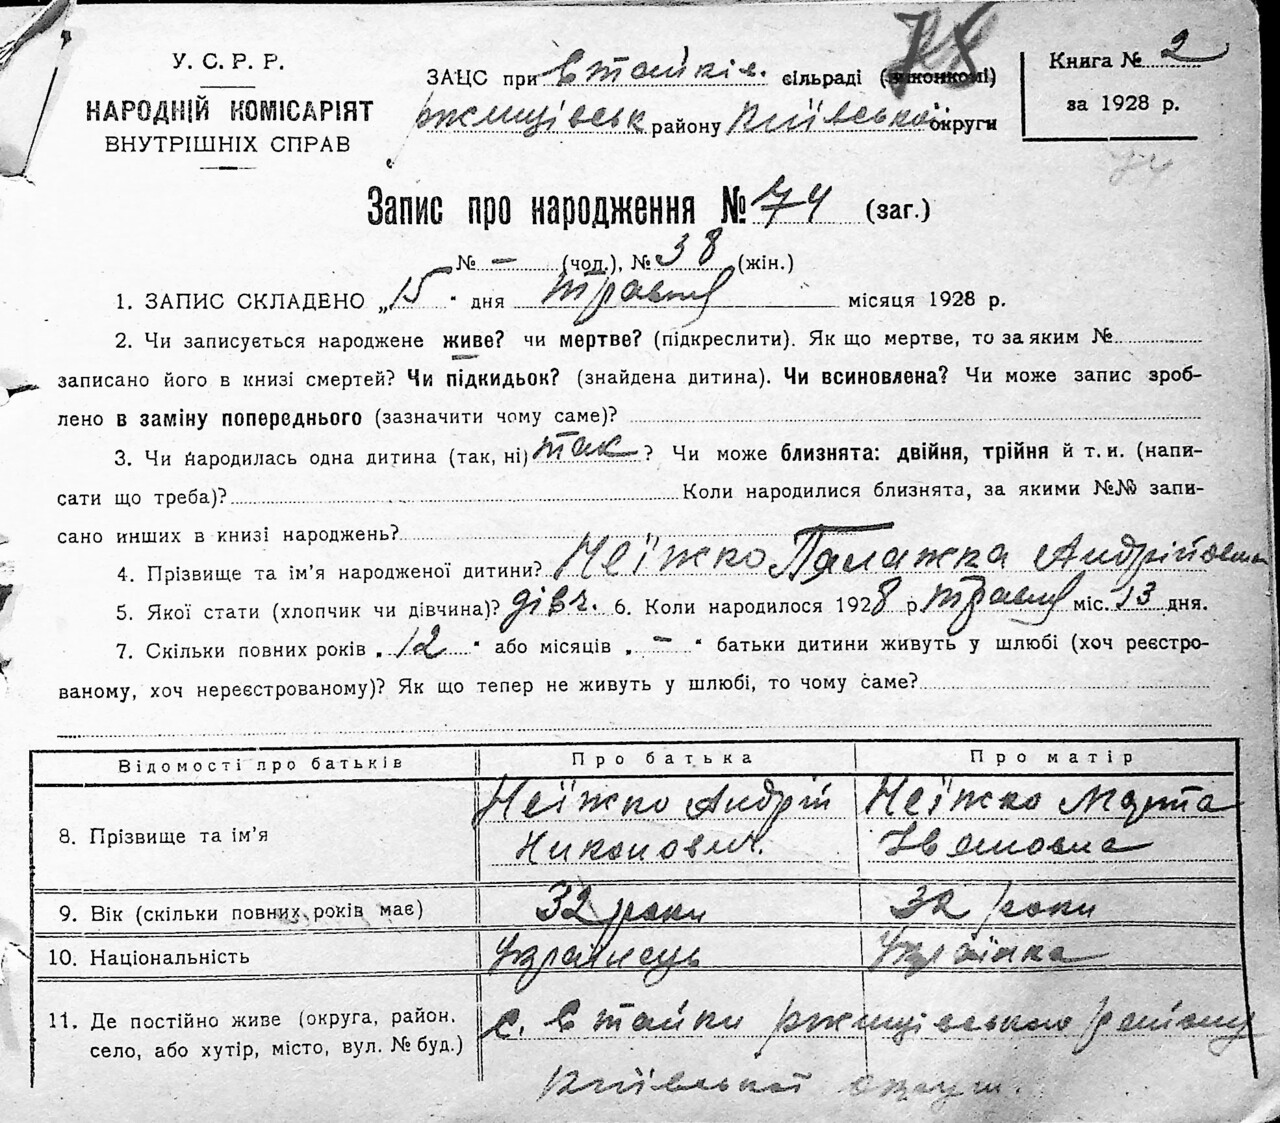 У. С. Р. Р.
НАРОДНІЙ КОМІСАРІЯТ
ВНУТРІШНІХ СПРАВ
ЗАЦС при Стайків. сільраді (виконкомі)
Ржищівськ району Київської округи
Книга № 2
за 1928 р.
74
Запис про народження № 74 (заг.)
№ — (чол.), № 38 (жін.)
1. ЗАПИС СКЛАДЕНО „15" дня травня місяця 1928 р.
2. Чи записується народжене живе? чи мертве? (підкреслити). Як що мертве, то за яким №
записано його в книзі смертей? Чи підкидьок? (знайдена дитина). Чи всиновлена? Чи може запис зроб-
лено в заміну попереднього (зазначити чому саме)?
3. Чи народилась одна дитина (так, ні) так? Чи може близнята: двійня, трійня й т. и. (напи-
сати що треба)? Коли народилися близнята, за якими №№ запи-
сано инших в книзі народжень?
4. Прізвище та ім'я народженої дитини? Неїжко Палажка Андрійовна
5. Якої стати (хлопчик чи дівчина)? дівч. 6. Коли народилося 1928 р травня міс. 13 дня.
7. Скільки повних років „12" або місяців „—" батьки дитини живуть у шлюбі (хоч реєстро-
ваному, хоч нереєстрованому)? Як що тепер не живуть у шлюбі, то чому саме?
Відомості про батьків Про батька Про матір
8. Прізвище та ім'я Неїжко Андрій Никонович. Неїжко Марта Івановна
9. Вік (скільки повних років має) 32 роки 32 роки
10. Національність Українець Українка
11. Де постійно живе (округа, район, село, або хутір, місто, вул. № буд.) с. Стайки Ржищівського району
Київської округи.